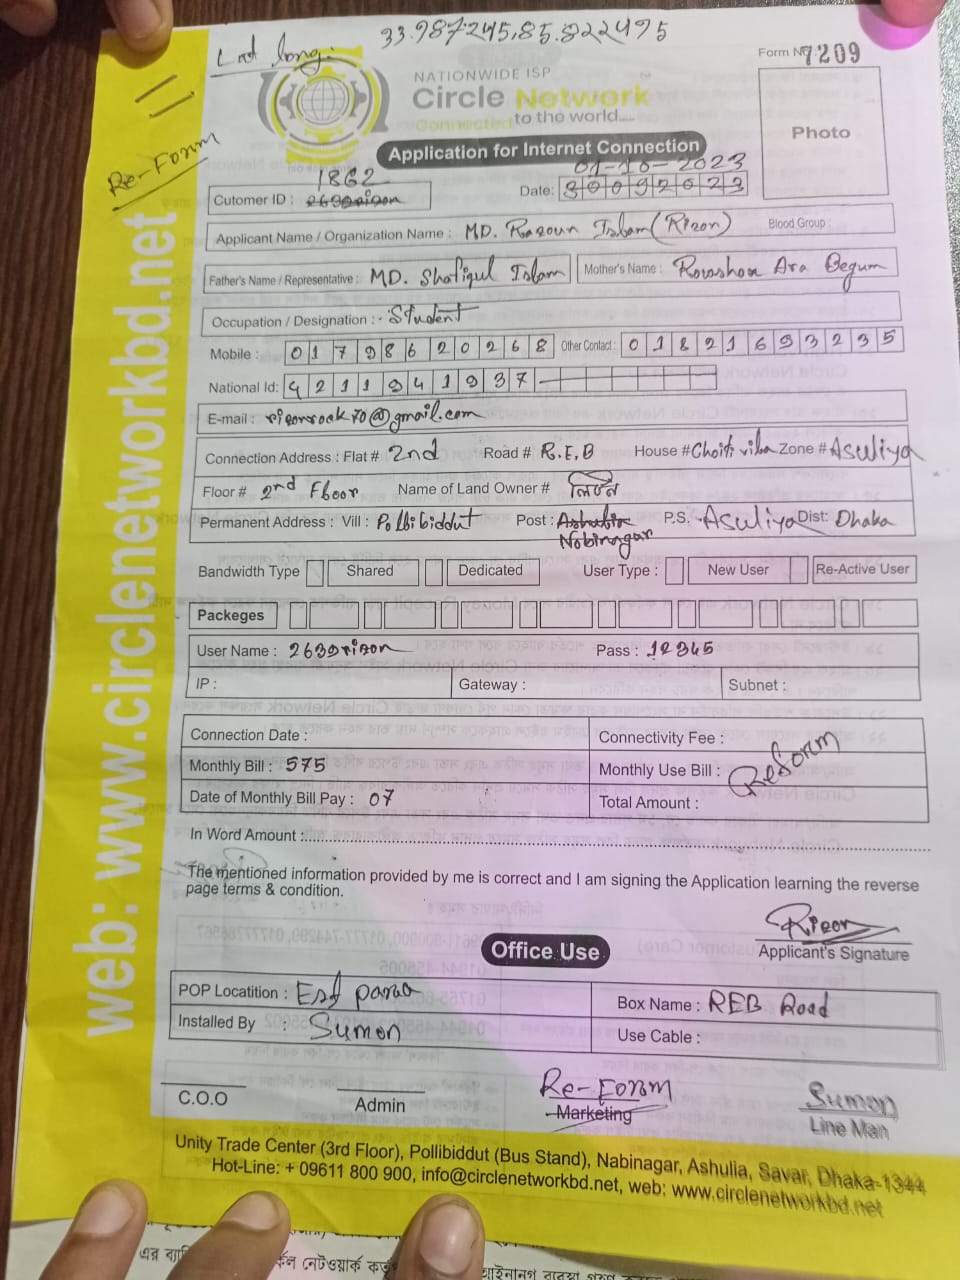 33.987245,85.822495
Lat long:
Form No 7209
NATIONWIDE ISP
Circle Network
Connected to the world.....
Photo
Application for Internet Connection
Re-Form
1862
01-10-2023
Cutomer ID : 2630rizon
Date: 30092023
Applicant Name / Organization Name : MD. Razoun Islam (Rizon) Blood Group :
Father's Name / Representative : MD. Shafiqul Islam Mother's Name : Rowshon Ara Begum
Occupation / Designation : Student
Mobile : 01798620268 Other Contact : 01821693235
National Id: 4211941937
E-mail : rizonrock70@gmail.com
Connection Address : Flat # 2nd Road # R.E.B House # Zone # Asuliya
Floor # 2nd Floor Name of Land Owner # লিটন
Permanent Address : Vill : Pollibiddut Post : Ashulia P.S. Asuliya Dist: Dhaka
Nobinagar
Bandwidth Type Shared Dedicated User Type : New User Re-Active User
Packeges
User Name : 2630rizon Pass : 12345
IP : Gateway : Subnet :
Connection Date : Connectivity Fee :
Monthly Bill : 575 Monthly Use Bill : Reform
Date of Monthly Bill Pay : 07 Total Amount :
In Word Amount :
The mentioned information provided by me is correct and I am signing the Application learning the reverse
page terms & condition.
Rizon
Applicant's Signature
Office Use
POP Locatition : Esd para Box Name : REB Road
Installed By : Sumon Use Cable :
Re-Form Sumon
C.O.O Admin Marketing Line Man
Unity Trade Center (3rd Floor), Pollibiddut (Bus Stand), Nabinagar, Ashulia, Savar, Dhaka-1344
Hot-Line: + 09611 800 900, info@circlenetworkbd.net, web: www.circlenetworkbd.net
web: www.circlenetworkbd.net